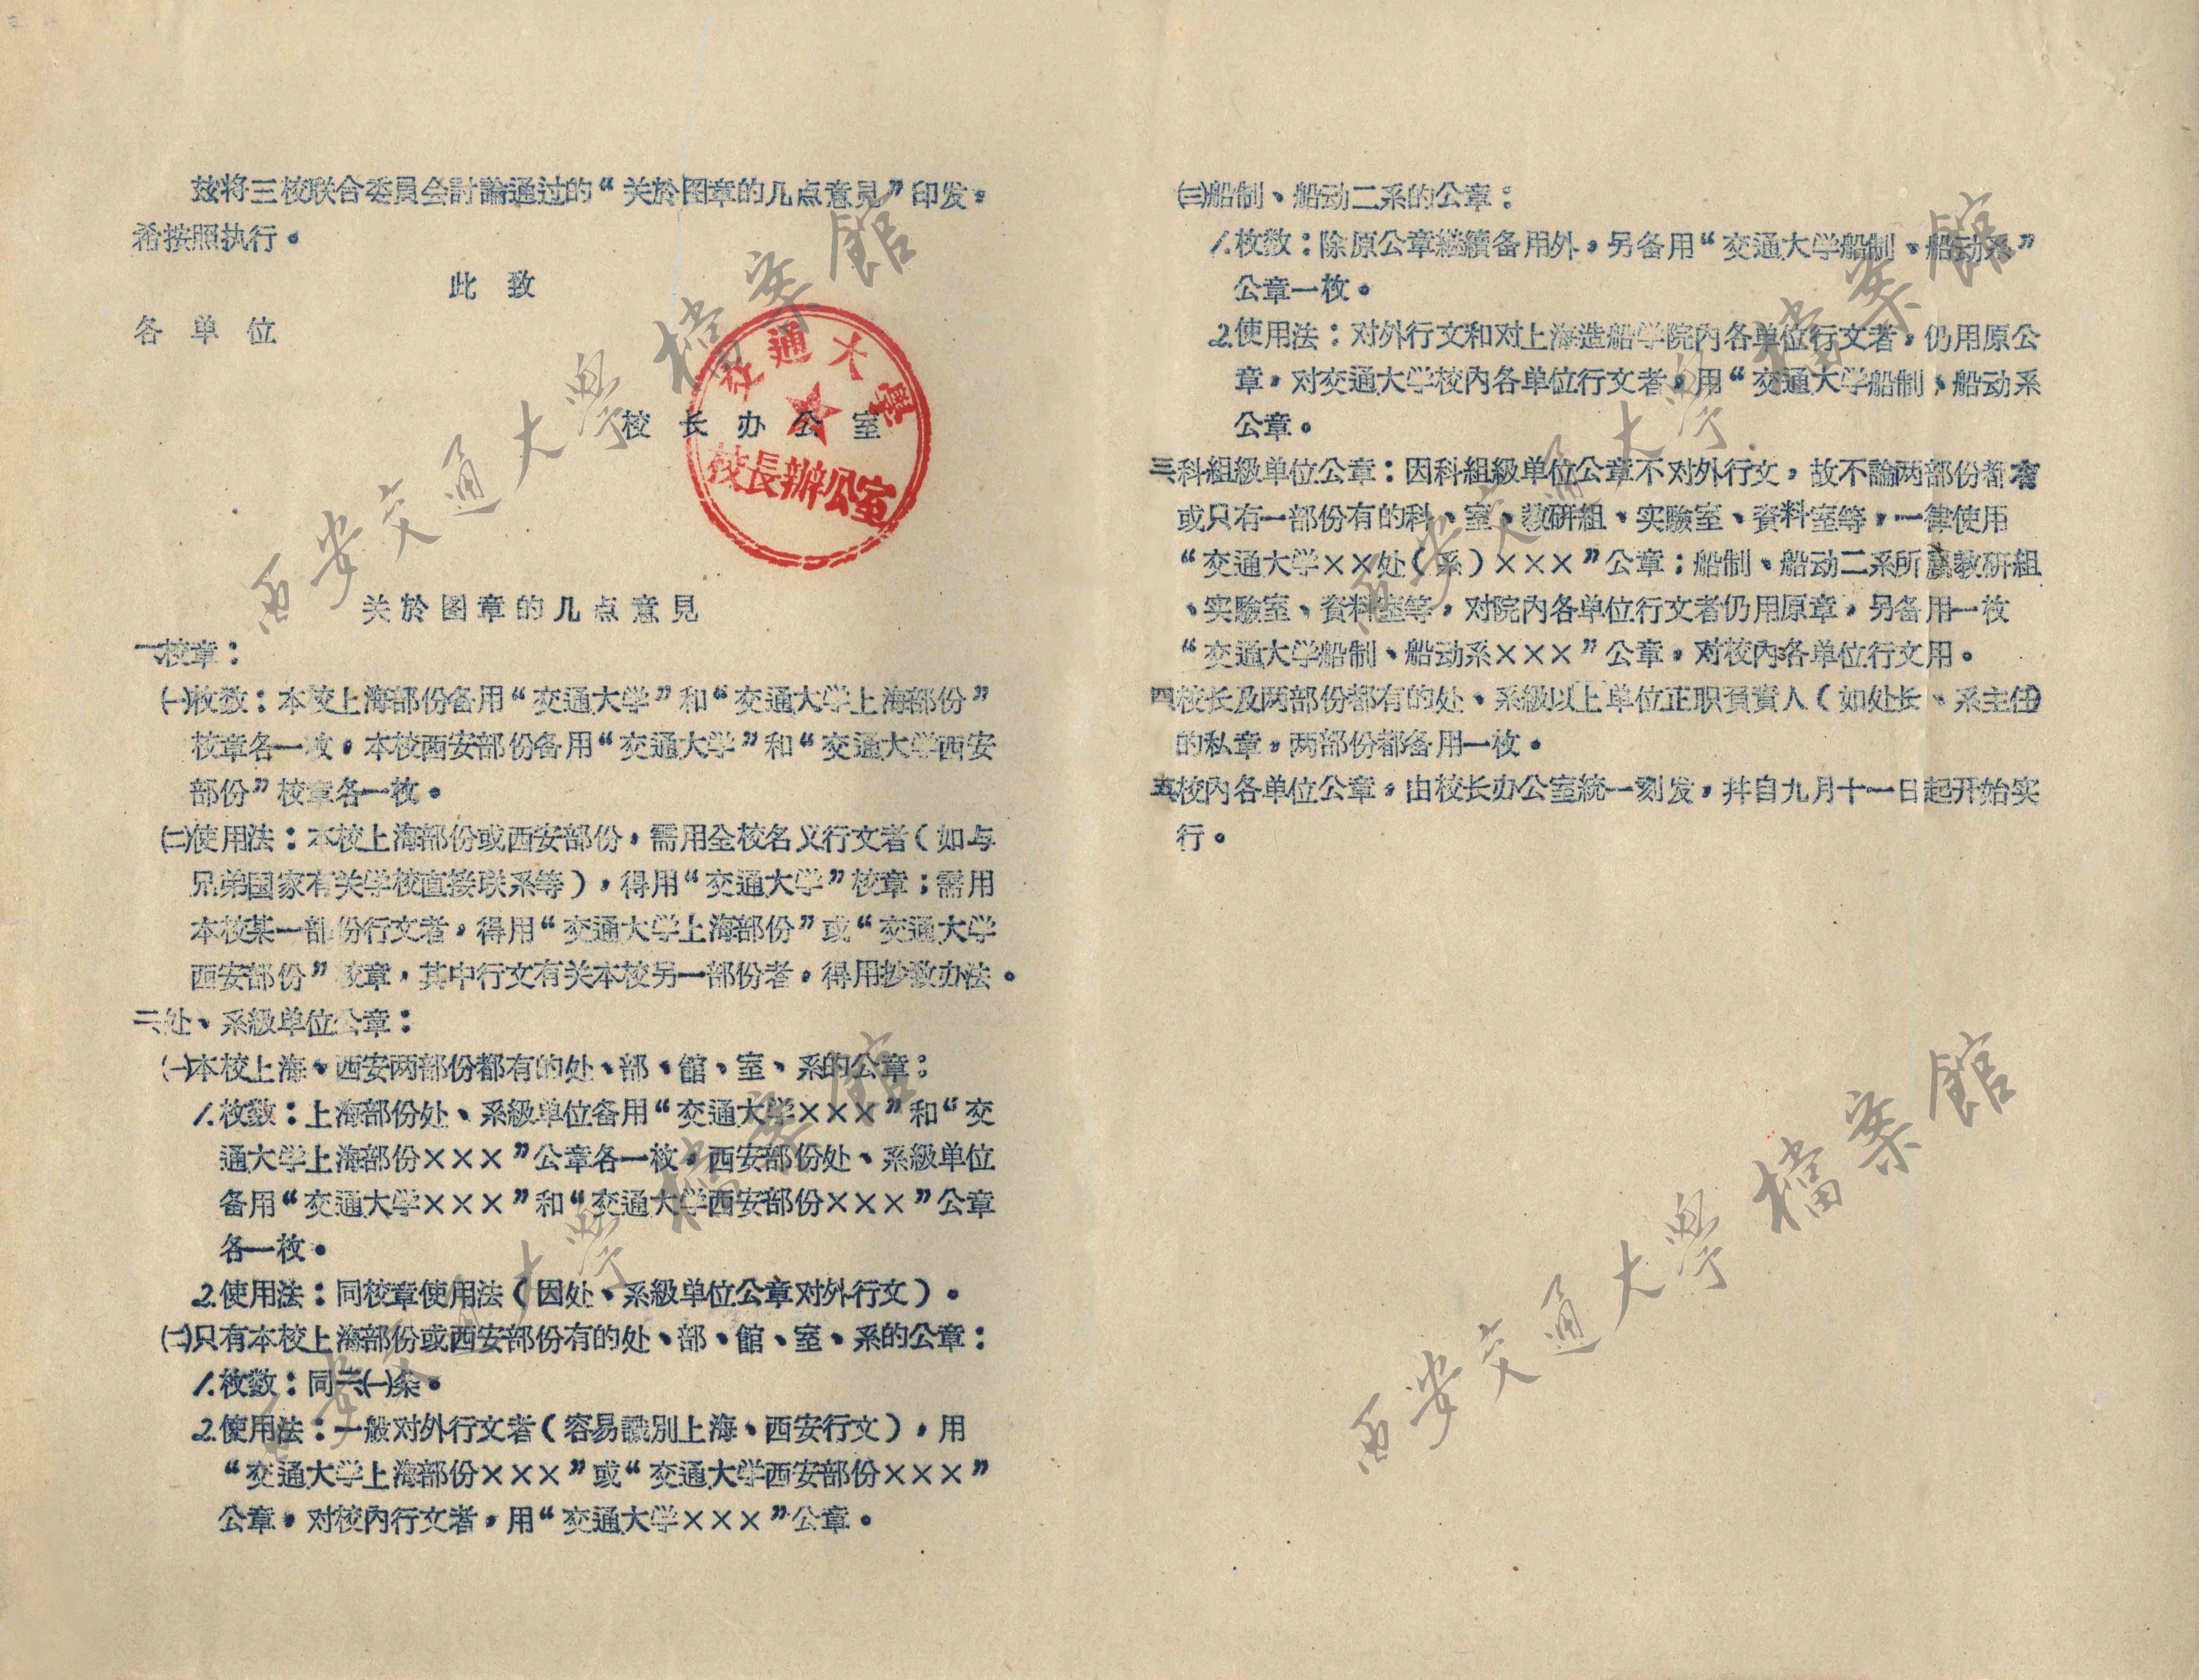 兹将三校联合委員会討論通过的“关於图章的几点意見”印发，
希按照执行。
此致
各单位
校长办公室
交通大學
校長辦公室
关於图章的几点意見
一、校章：
㈠枚数：本校上海部份备用“交通大学”和“交通大学上海部份”
校章各一枚，本校西安部份备用“交通大学”和“交通大学西安
部份”校章各一枚。
㈡使用法：本校上海部份或西安部份，需用全校名义行文者（如与
兄弟国家有关学校直接联系等），得用“交通大学”校章；需用
本校某一部份行文者，得用“交通大学上海部份”或“交通大学
西安部份”校章，其中行文有关本校另一部份者，得用抄致办法。
二、处、系級单位公章：
㈠本校上海、西安两部份都有的处、部、館、室、系的公章：
1.枚数：上海部份处、系級单位备用“交通大学×××”和“交
通大学上海部份×××”公章各一枚，西安部份处、系級单位
备用“交通大学×××”和“交通大学西安部份×××”公章
各一枚。
2.使用法：同校章使用法（因处、系級单位公章对外行文）。
㈡只有本校上海部份或西安部份有的处、部、館、室、系的公章：
1.枚数：同二㈠条。
2.使用法：一般对外行文者（容易識別上海、西安行文），用
“交通大学上海部份×××”或“交通大学西安部份×××”
公章，对校內行文者，用“交通大学×××”公章。
㈢船制、船动二系的公章：
1.枚数：除原公章継續备用外，另备用“交通大学船制、船动系”
公章一枚。
2.使用法：对外行文和对上海造船学院內各单位行文者，仍用原公
章，对交通大学校內各单位行文者，用“交通大学船制、船动系
公章。
三、科組級单位公章：因科組級单位公章不对外行文，故不論两部份都有
或只有一部份有的科、室、教研組、实驗室、資料室等，一律使用
“交通大学××处（系）×××”公章；船制、船动二系所屬教研組
、实驗室、資料室等，对院內各单位行文者仍用原章，另备用一枚
“交通大学船制、船动系×××”公章，对校內各单位行文用。
四、校长及两部份都有的处、系級以上单位正职負責人（如处长、系主任）
的私章，两部份都备用一枚。
五、校內各单位公章，由校长办公室統一刻发，并自九月十一日起开始实
行。
西安交通大學檔案館
西安交通大學檔案館
西安交通大學檔案館
西安交通大學檔案館